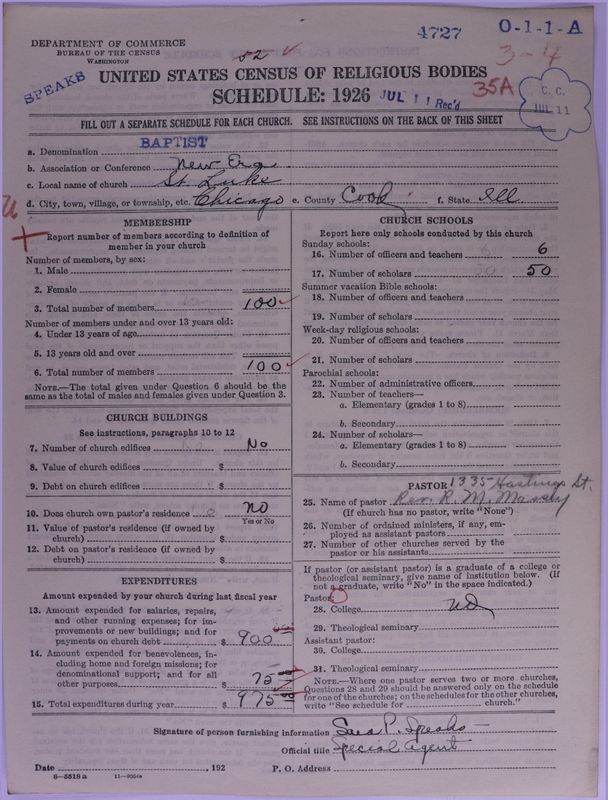 4727
O-1-1-A
DEPARTMENT OF COMMERCE
BUREAU OF THE CENSUS
WASHINGTON
52
3-4
SPEAKS
UNITED STATES CENSUS OF RELIGIOUS BODIES
SCHEDULE: 1926
JUL 11 Rec'd
35A
C. C.
JUL 11
FILL OUT A SEPARATE SCHEDULE FOR EACH CHURCH. SEE INSTRUCTIONS ON THE BACK OF THIS SHEET
a. Denomination BAPTIST
b. Association or Conference New Era
c. Local name of church St. Luke
d. City, town, village, or township, etc. Chicago e. County Cook f. State Ill
MEMBERSHIP
Report number of members according to definition of member in your church
Number of members, by sex:
1. Male
2. Female
3. Total number of members 100
Number of members under and over 13 years old:
4. Under 13 years of age
5. 13 years old and over
6. Total number of members 100
NOTE.—The total given under Question 6 should be the
same as the total of males and females given under Question 3.
CHURCH BUILDINGS
See instructions, paragraphs 10 to 12
7. Number of church edifices No
8. Value of church edifices $
9. Debt on church edifices $
10. Does church own pastor's residence no
Yes or No
11. Value of pastor's residence (if owned by
church) $
12. Debt on pastor's residence (if owned by
church) $
EXPENDITURES
Amount expended by your church during last fiscal year
13. Amount expended for salaries, repairs,
and other running expenses; for im-
provements or new buildings; and for
payments on church debt $ 900 00
14. Amount expended for benevolences, in-
cluding home and foreign missions; for
denominational support; and for all
other purposes $ 75 00
15. Total expenditures during year $ 975 00
CHURCH SCHOOLS
Report here only schools conducted by this church
Sunday schools:
16. Number of officers and teachers 6
17. Number of scholars 50
Summer vacation Bible schools:
18. Number of officers and teachers
19. Number of scholars
Week-day religious schools:
20. Number of officers and teachers
21. Number of scholars
Parochial schools:
22. Number of administrative officers
23. Number of teachers—
a. Elementary (grades 1 to 8)
b. Secondary
24. Number of scholars—
a. Elementary (grades 1 to 8)
b. Secondary
PASTOR 1335 Hastings St.
25. Name of pastor Rev. R. M. Massey
(If church has no pastor, write "None")
26. Number of ordained ministers, if any, em-
ployed as assistant pastors
27. Number of other churches served by the
pastor or his assistants
If pastor (or assistant pastor) is a graduate of a college or
theological seminary, give name of institution below. (If
not a graduate, write "No" in the space indicated.)
Pastor:
28. College no
29. Theological seminary
Assistant pastor:
30. College
31. Theological seminary
NOTE.—Where one pastor serves two or more churches,
Questions 28 and 29 should be answered only on the schedule
for one of the churches; on the schedules for the other churches,
write "See schedule for church."
Signature of person furnishing information Sara P. Speaks
Official title Special Agent
Date , 192 P. O. Address
8-5518a 11-9204a